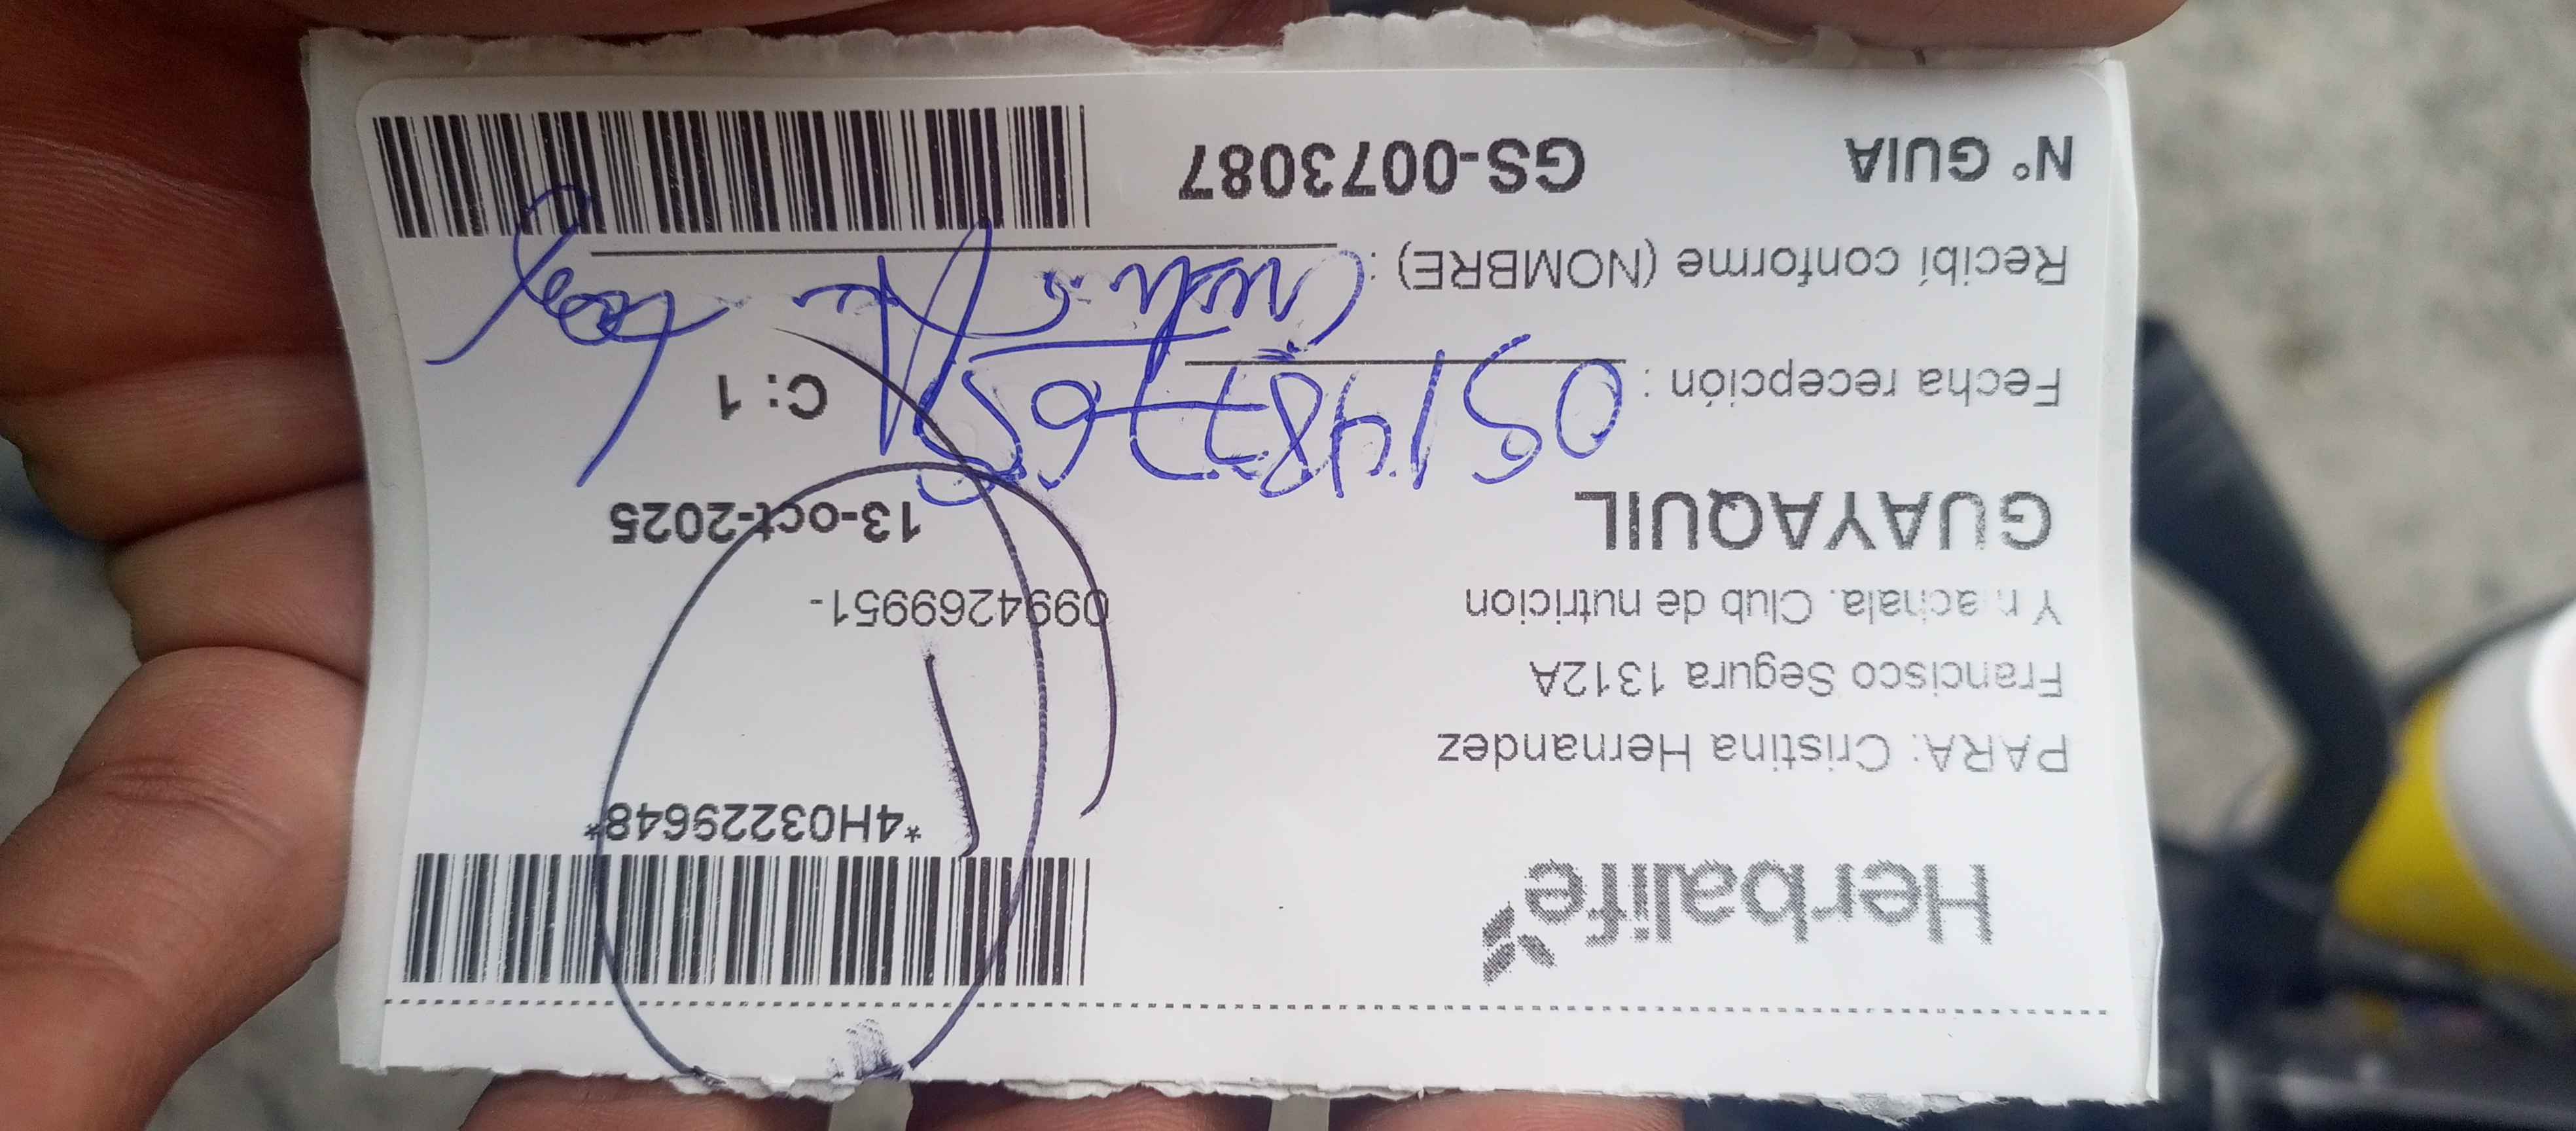 Herbalife
*4H032299648*
PARA: Cristina Hernandez
Francisco Segura 1312A
0994269951-
Y machala. Club de nutricion
GUAYAQUIL
13-oct-2025
Fecha recepción :
C: 1
Recibí conforme (NOMBRE) :
N° GUIA GS-0073087